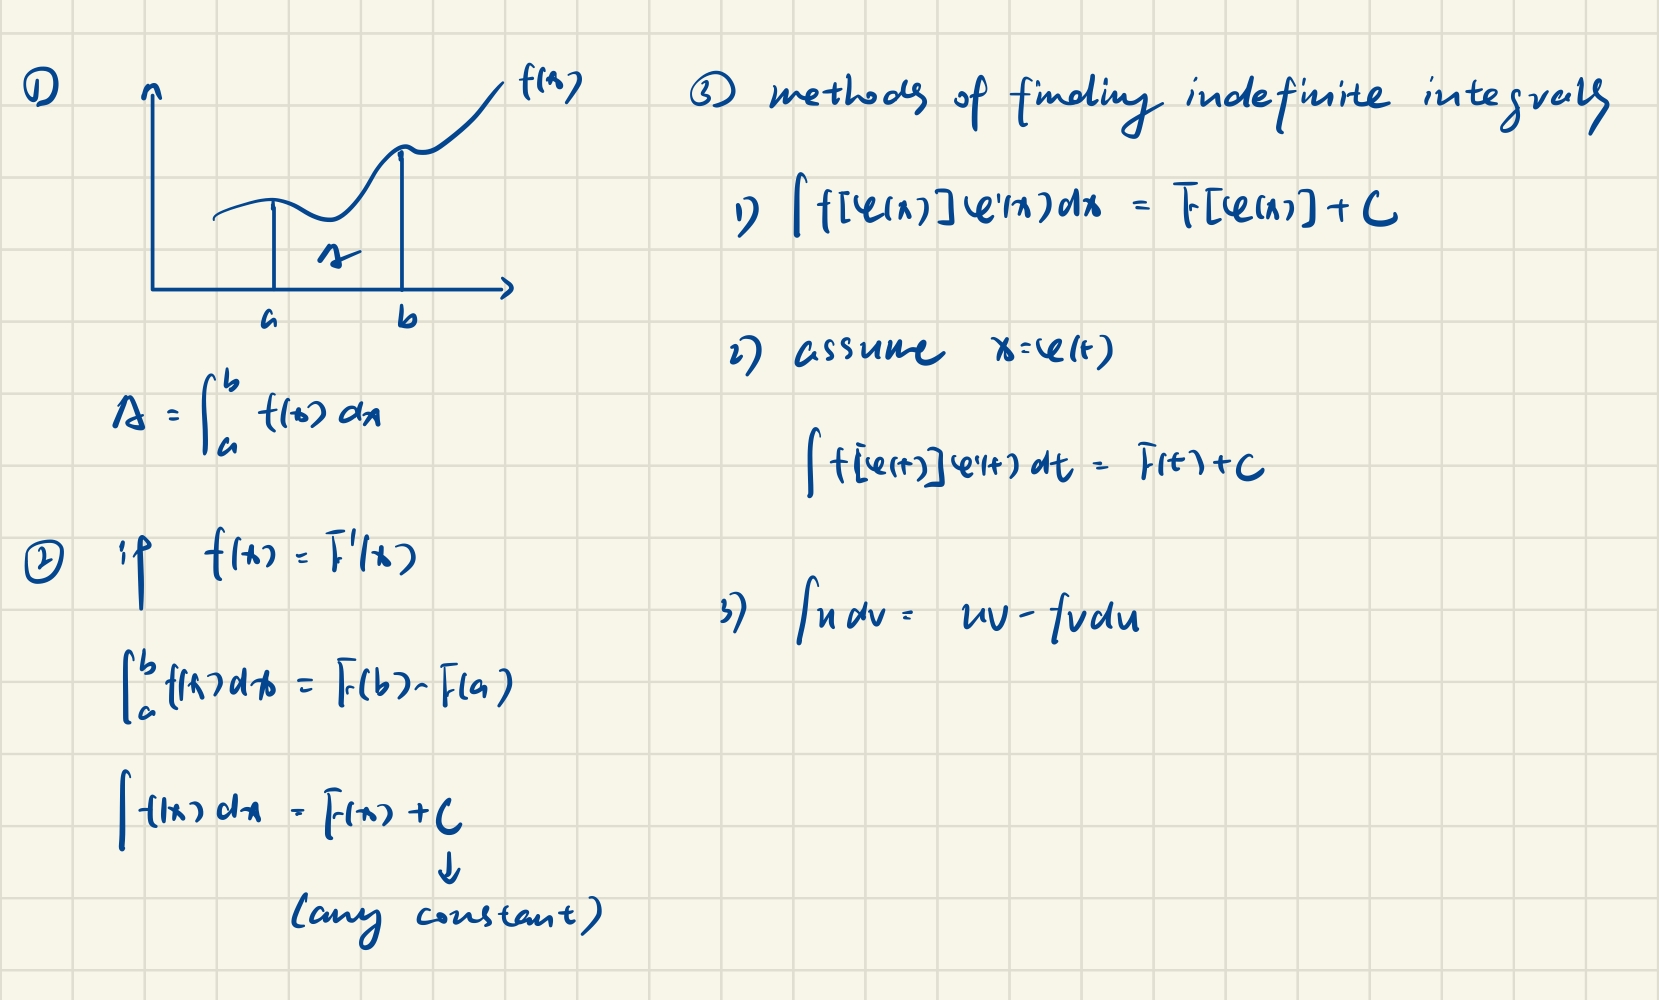 ①
f(x)
A
a b
A = ∫_a^b f(x) dx
② if f(x) = F'(x)
∫_a^b f(x) dx = F(b) - F(a)
∫ f(x) dx = F(x) + C
↓
(any constant)
③ methods of finding indefinite integrals
1) ∫ f[φ(x)] φ'(x) dx = F[φ(x)] + C
2) assume x = φ(t)
∫ f[φ(t)] φ'(t) dt = F(t) + C
3) ∫ u dv = uv - ∫ v du